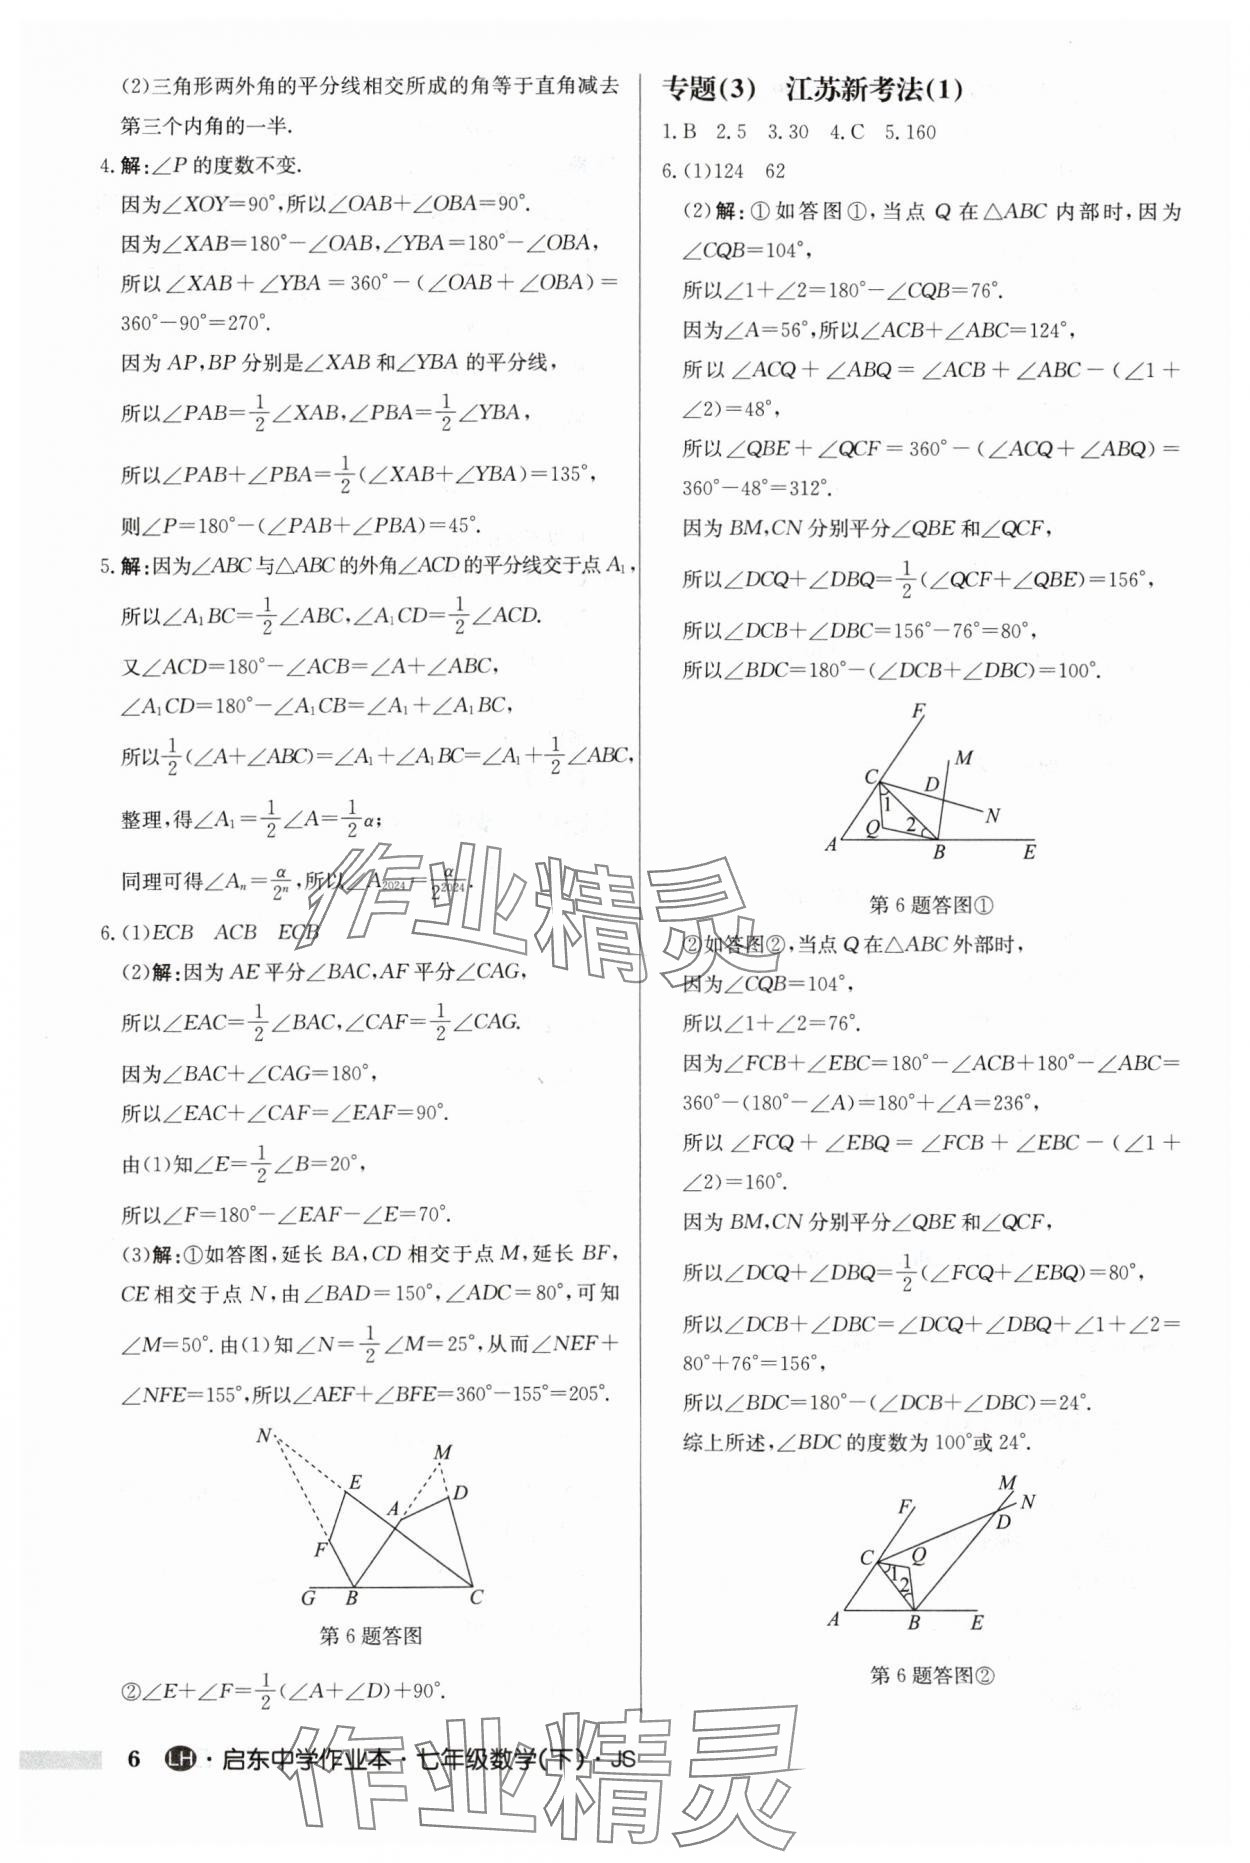 (2)三角形两外角的平分线相交所成的角等于直角减去
第三个内角的一半.
4.解:∠P 的度数不变.
因为∠XOY=90°,所以∠OAB+∠OBA=90°.
因为∠XAB=180°-∠OAB,∠YBA=180°-∠OBA,
所以∠XAB+∠YBA=360°-(∠OAB+∠OBA)=
360°-90°=270°.
因为 AP,BP 分别是∠XAB 和∠YBA 的平分线,
所以∠PAB=1/2∠XAB,∠PBA=1/2∠YBA,
所以∠PAB+∠PBA=1/2(∠XAB+∠YBA)=135°,
则∠P=180°-(∠PAB+∠PBA)=45°.
5.解:因为∠ABC与△ABC的外角∠ACD的平分线交于点A₁,
所以∠A₁BC=1/2∠ABC,∠A₁CD=1/2∠ACD.
又∠ACD=180°-∠ACB=∠A+∠ABC,
∠A₁CD=180°-∠A₁CB=∠A₁+∠A₁BC,
所以1/2(∠A+∠ABC)=∠A₁+∠A₁BC=∠A₁+1/2∠ABC,
整理,得∠A₁=1/2∠A=1/2α;
同理可得∠Aₙ=α/2ⁿ,所以∠A₂₀₂₄=α/2²⁰²⁴.
6.(1)ECB ACB ECB
(2)解:因为 AE平分∠BAC,AF平分∠CAG,
所以∠EAC=1/2∠BAC,∠CAF=1/2∠CAG.
因为∠BAC+∠CAG=180°,
所以∠EAC+∠CAF=∠EAF=90°.
由(1)知∠E=1/2∠B=20°,
所以∠F=180°-∠EAF-∠E=70°.
(3)解:①如答图,延长 BA,CD 相交于点 M,延长 BF,
CE相交于点 N,由∠BAD=150°,∠ADC=80°,可知
∠M=50°.由(1)知∠N=1/2∠M=25°,从而∠NEF+
∠NFE=155°,所以∠AEF+∠BFE=360°-155°=205°.
N
M
E
D
A
F
G B C
第6题答图
②∠E+∠F=1/2(∠A+∠D)+90°.
专题(3) 江苏新考法(1)
1.B 2.5 3.30 4.C 5.160
6.(1)124 62
(2)解:①如答图①,当点 Q 在△ABC 内部时,因为
∠CQB=104°,
所以∠1+∠2=180°-∠CQB=76°.
因为∠A=56°,所以∠ACB+∠ABC=124°,
所以∠ACQ+∠ABQ=∠ACB+∠ABC-(∠1+
∠2)=48°,
所以∠QBE+∠QCF=360°-(∠ACQ+∠ABQ)=
360°-48°=312°.
因为 BM,CN 分别平分∠QBE和∠QCF,
所以∠DCQ+∠DBQ=1/2(∠QCF+∠QBE)=156°,
所以∠DCB+∠DBC=156°-76°=80°,
所以∠BDC=180°-(∠DCB+∠DBC)=100°.
F
M
C D
1 N
Q 2
A B E
第6题答图①
②如答图②,当点 Q 在△ABC 外部时,
因为∠CQB=104°,
所以∠1+∠2=76°.
因为∠FCB+∠EBC=180°-∠ACB+180°-∠ABC=
360°-(180°-∠A)=180°+∠A=236°,
所以∠FCQ+∠EBQ=∠FCB+∠EBC-(∠1+
∠2)=160°.
因为 BM,CN 分别平分∠QBE和∠QCF,
所以∠DCQ+∠DBQ=1/2(∠FCQ+∠EBQ)=80°,
所以∠DCB+∠DBC=∠DCQ+∠DBQ+∠1+∠2=
80°+76°=156°,
所以∠BDC=180°-(∠DCB+∠DBC)=24°.
综上所述,∠BDC的度数为100°或24°.
M
F N
D
C Q
1
2
A B E
第6题答图②
作业精灵
作业精灵
6 LH·启东中学作业本·七年级数学(下)·JS